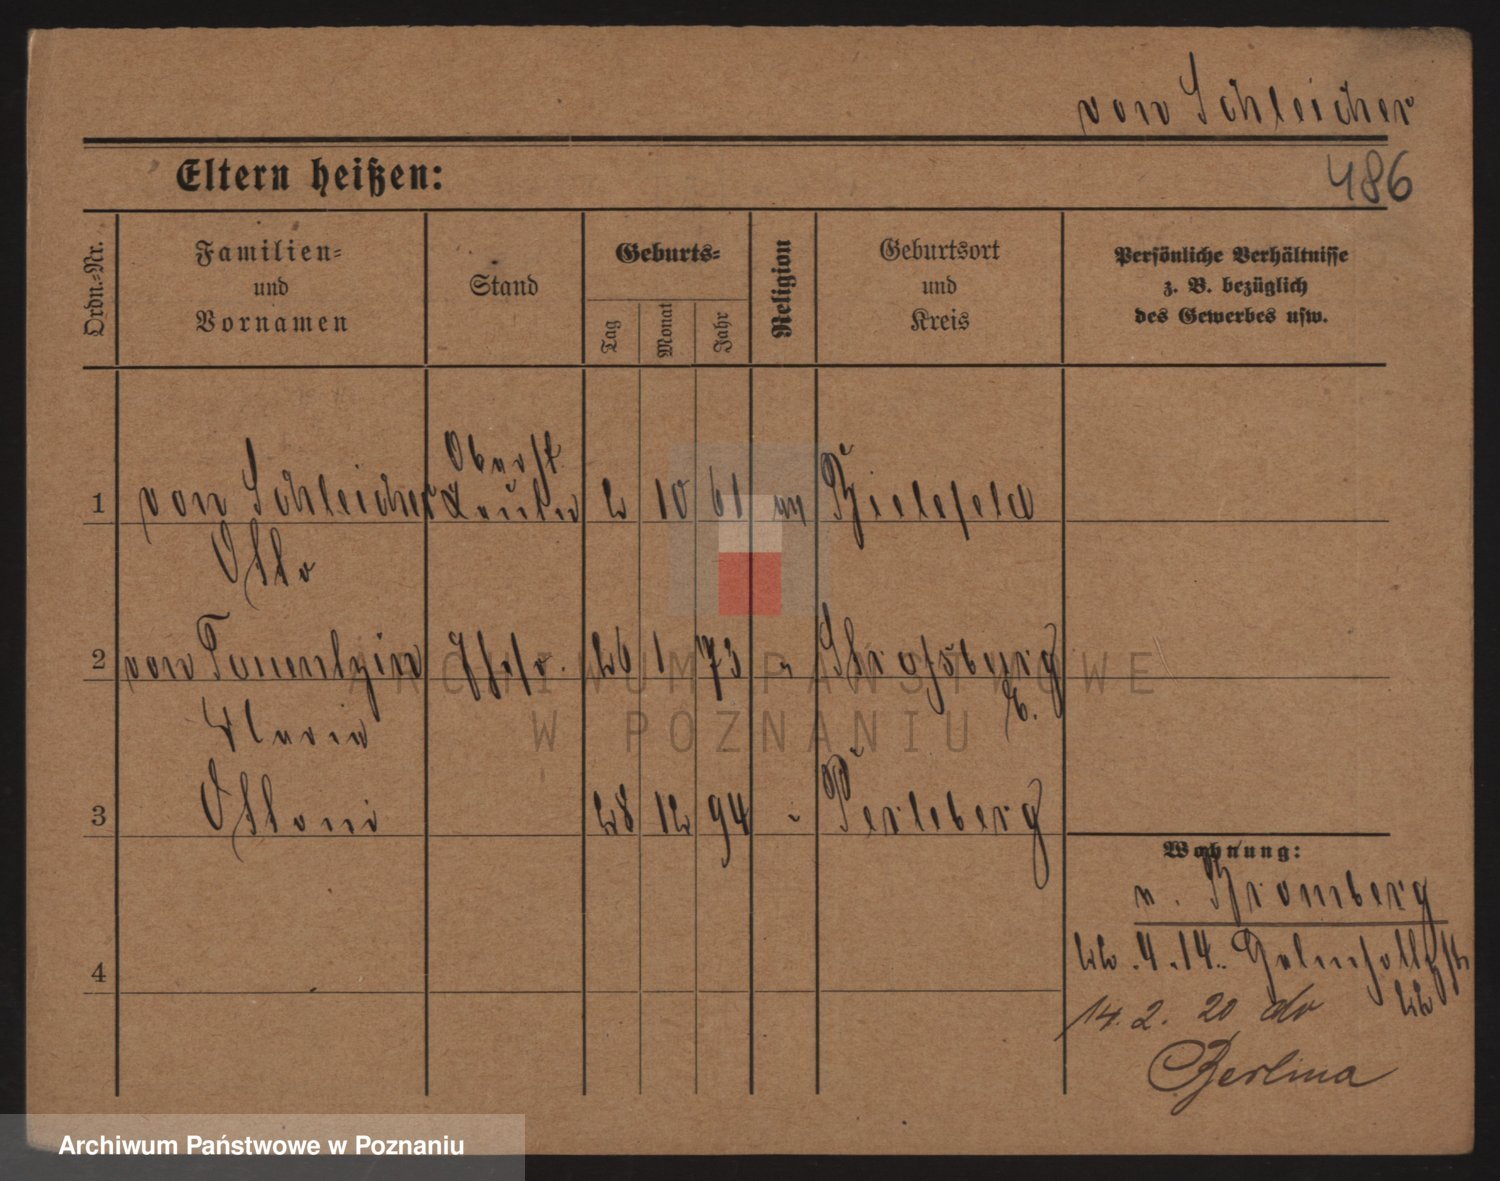 von Schleicher
Eltern heißen:
486
Ordn.-Nr.
Familien-
und
Vornamen
Stand
Geburts-
Tag
Monat
Jahr
Religion
Geburtsort
und
Kreis
Persönliche Verhältnisse
z. B. bezüglich
des Gewerbes usw.
Oberst
1 von Schleicher 2 10 61 Bielefeld
Otto
2 von 26 1 73 " Straßburg
E.
Maria
3 28 12 94 " Perleberg
Wohnung:
v. Bromberg
4
22.4.14.
22
14. 2. 20 do
Berlina
ARCHIWUM PAŃSTWOWE
W POZNANIU
Archiwum Państwowe w Poznaniu